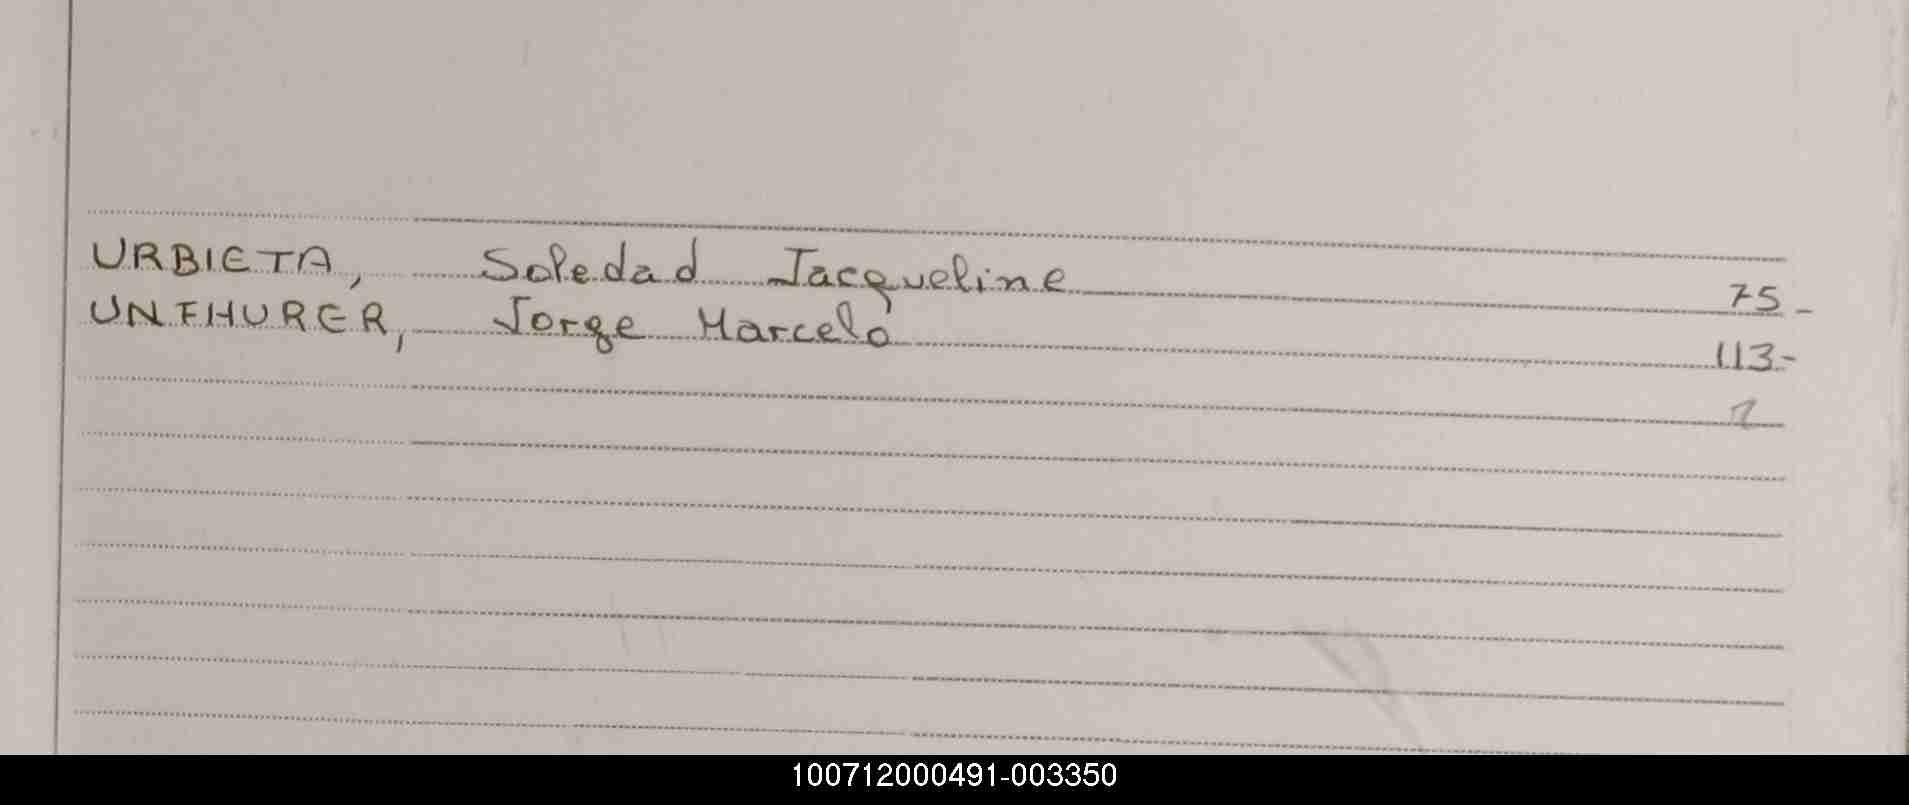 URBIETA, Soledad Jacqueline 75-
UNTHURER, Jorge Marcelo 113-
2
100712000491-003350